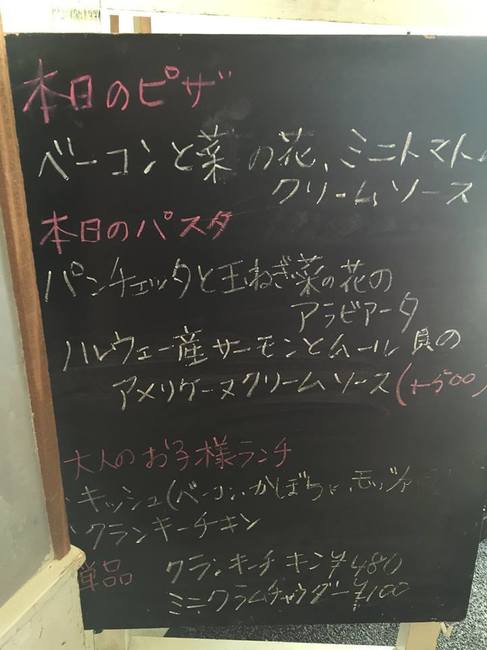 本日のピザ
ベーコンと菜の花、ミニトマト
クリームソース
本日のパスタ
パンチェッタと玉ねぎ菜の花の
アラビアータ
ノルウェー産サーモンとムール貝の
アメリケーヌクリームソース(+500)
大人のお子様ランチ
・キッシュ(ベーコン、かぼちゃ、モッツァ
・クランキーチキン
単品 クランキーチキン¥480
ミニクラムチャウダー¥100